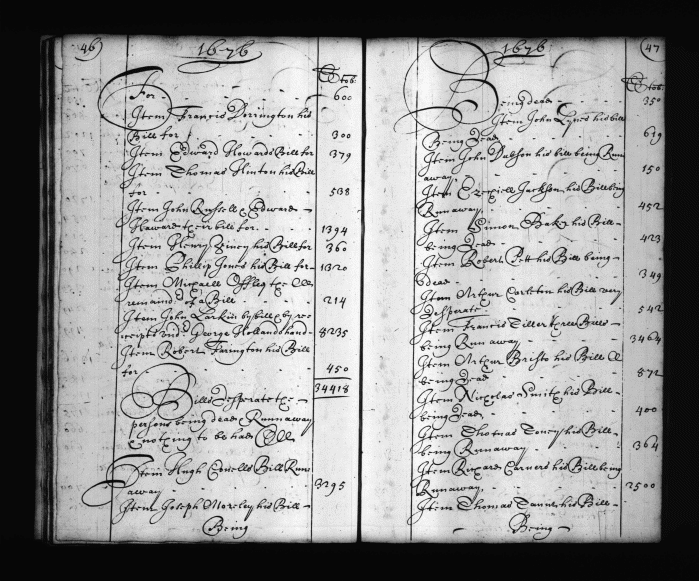 46
1676
℔ tob:
For - - - - 600
Item Francis Dorrington his
Bill for - - - 300
Item Edward Howards Bill for 379
Item Thomas Hinton his Bill
for - - - - 538
Item John Russell & Edward
Haward their bill for - 1394
Item Henry his Bill for 360
Item Phillip Jones his Bill for - 1320
Item Michaell Offley the
remaind: of a Bill - 214
Item John Larkin by bill & by re
ceipts und: George Hollands hand - 8235
Item Robert Farington his Bill
for - - - - 450
34418
Bills desperate the
persons being dead, Runnaway
& nothing to be had
Item Hugh Bill Run
away - - - 3295
Item Joseph Moreley his Bill -
Being
1676
47
℔ tob:
Being dead - - - 350
Item John Lynes his bill
Being Dead - - - 679
Item John Dabson his bill being Run
away - - - 150
Item Ezekiell Jackson his Bill being
Runaway - - - 452
Item Simon his Bill -
being Dead - - - 423
Item Robert Pett his Bill being -
dead - - - 349
Item Arthur Carleton his Bill very
desperate - - - 542
Item Francis three Bills -
being Run away - - 3464
Item Arthur Bristo his Bill
being Dead - - - 872
Item Nicholas Smith his Bill -
being Dead - - - 400
Item Thomas his Bill -
being Runaway - - 364
Item Richard his Bill being
Runaway - - - 2500
Item Thomas his Bill -
Being -